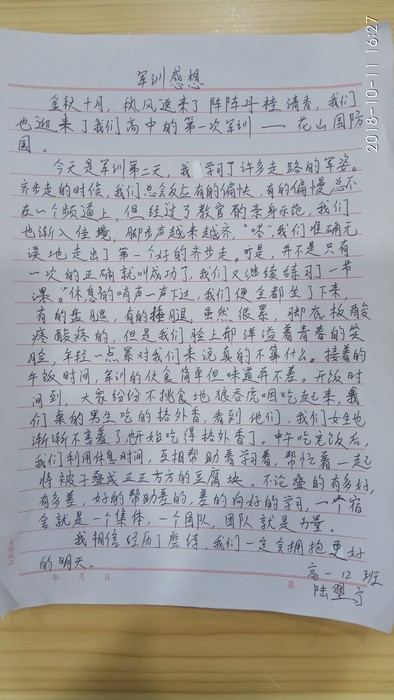 军训感想
金秋十月，秋风送来了阵阵丹桂清香，我们
也迎来了我们高中的第一次军训——花山国防
园。
今天是军训第二天，我学习了许多走路的军姿。
齐步走的时候，我们总会反应有的偏快，有的偏慢，总不
在一个频道上，但经过了教官的亲身示范，我们
也渐入佳境，脚步声越来越齐，“嗒”我们准确无
误地走出了第一个好的齐步走。可是，并不是只有
一次的正确就叫成功了，我们又继续练习了一节
课。“休息”的哨声一声下达，我们便全都坐了下来，
有的盘腿，有的捶腿，虽然很累，脚底板酸
疼酸疼的，但是我们脸上都洋溢着青春的笑
脸，年轻一点累对我们来说真的不算什么。接着的
午饭时间，军训的伙食简单但味道并不差。开饭时
间到，大家纷纷不挑食地狼吞虎咽吃起来，我
们桌的男生吃的格外香，看到他们，我们女生也
渐渐不害羞了，开始吃得格外香了。中午吃完饭后，
我们利用休息时间，互相帮助着学习着，帮忙着一起
将被子叠成正正方方的豆腐块，不论叠的有多好，
有多差，好的帮助差的，差的向好的学习，一个宿
舍就是一个集体，一个团队，团队就是力量。
我相信经历了磨练，我们一定会拥抱更好
的明天。
年 月 日
第
高一12班
陆
2018-10-11 16:27